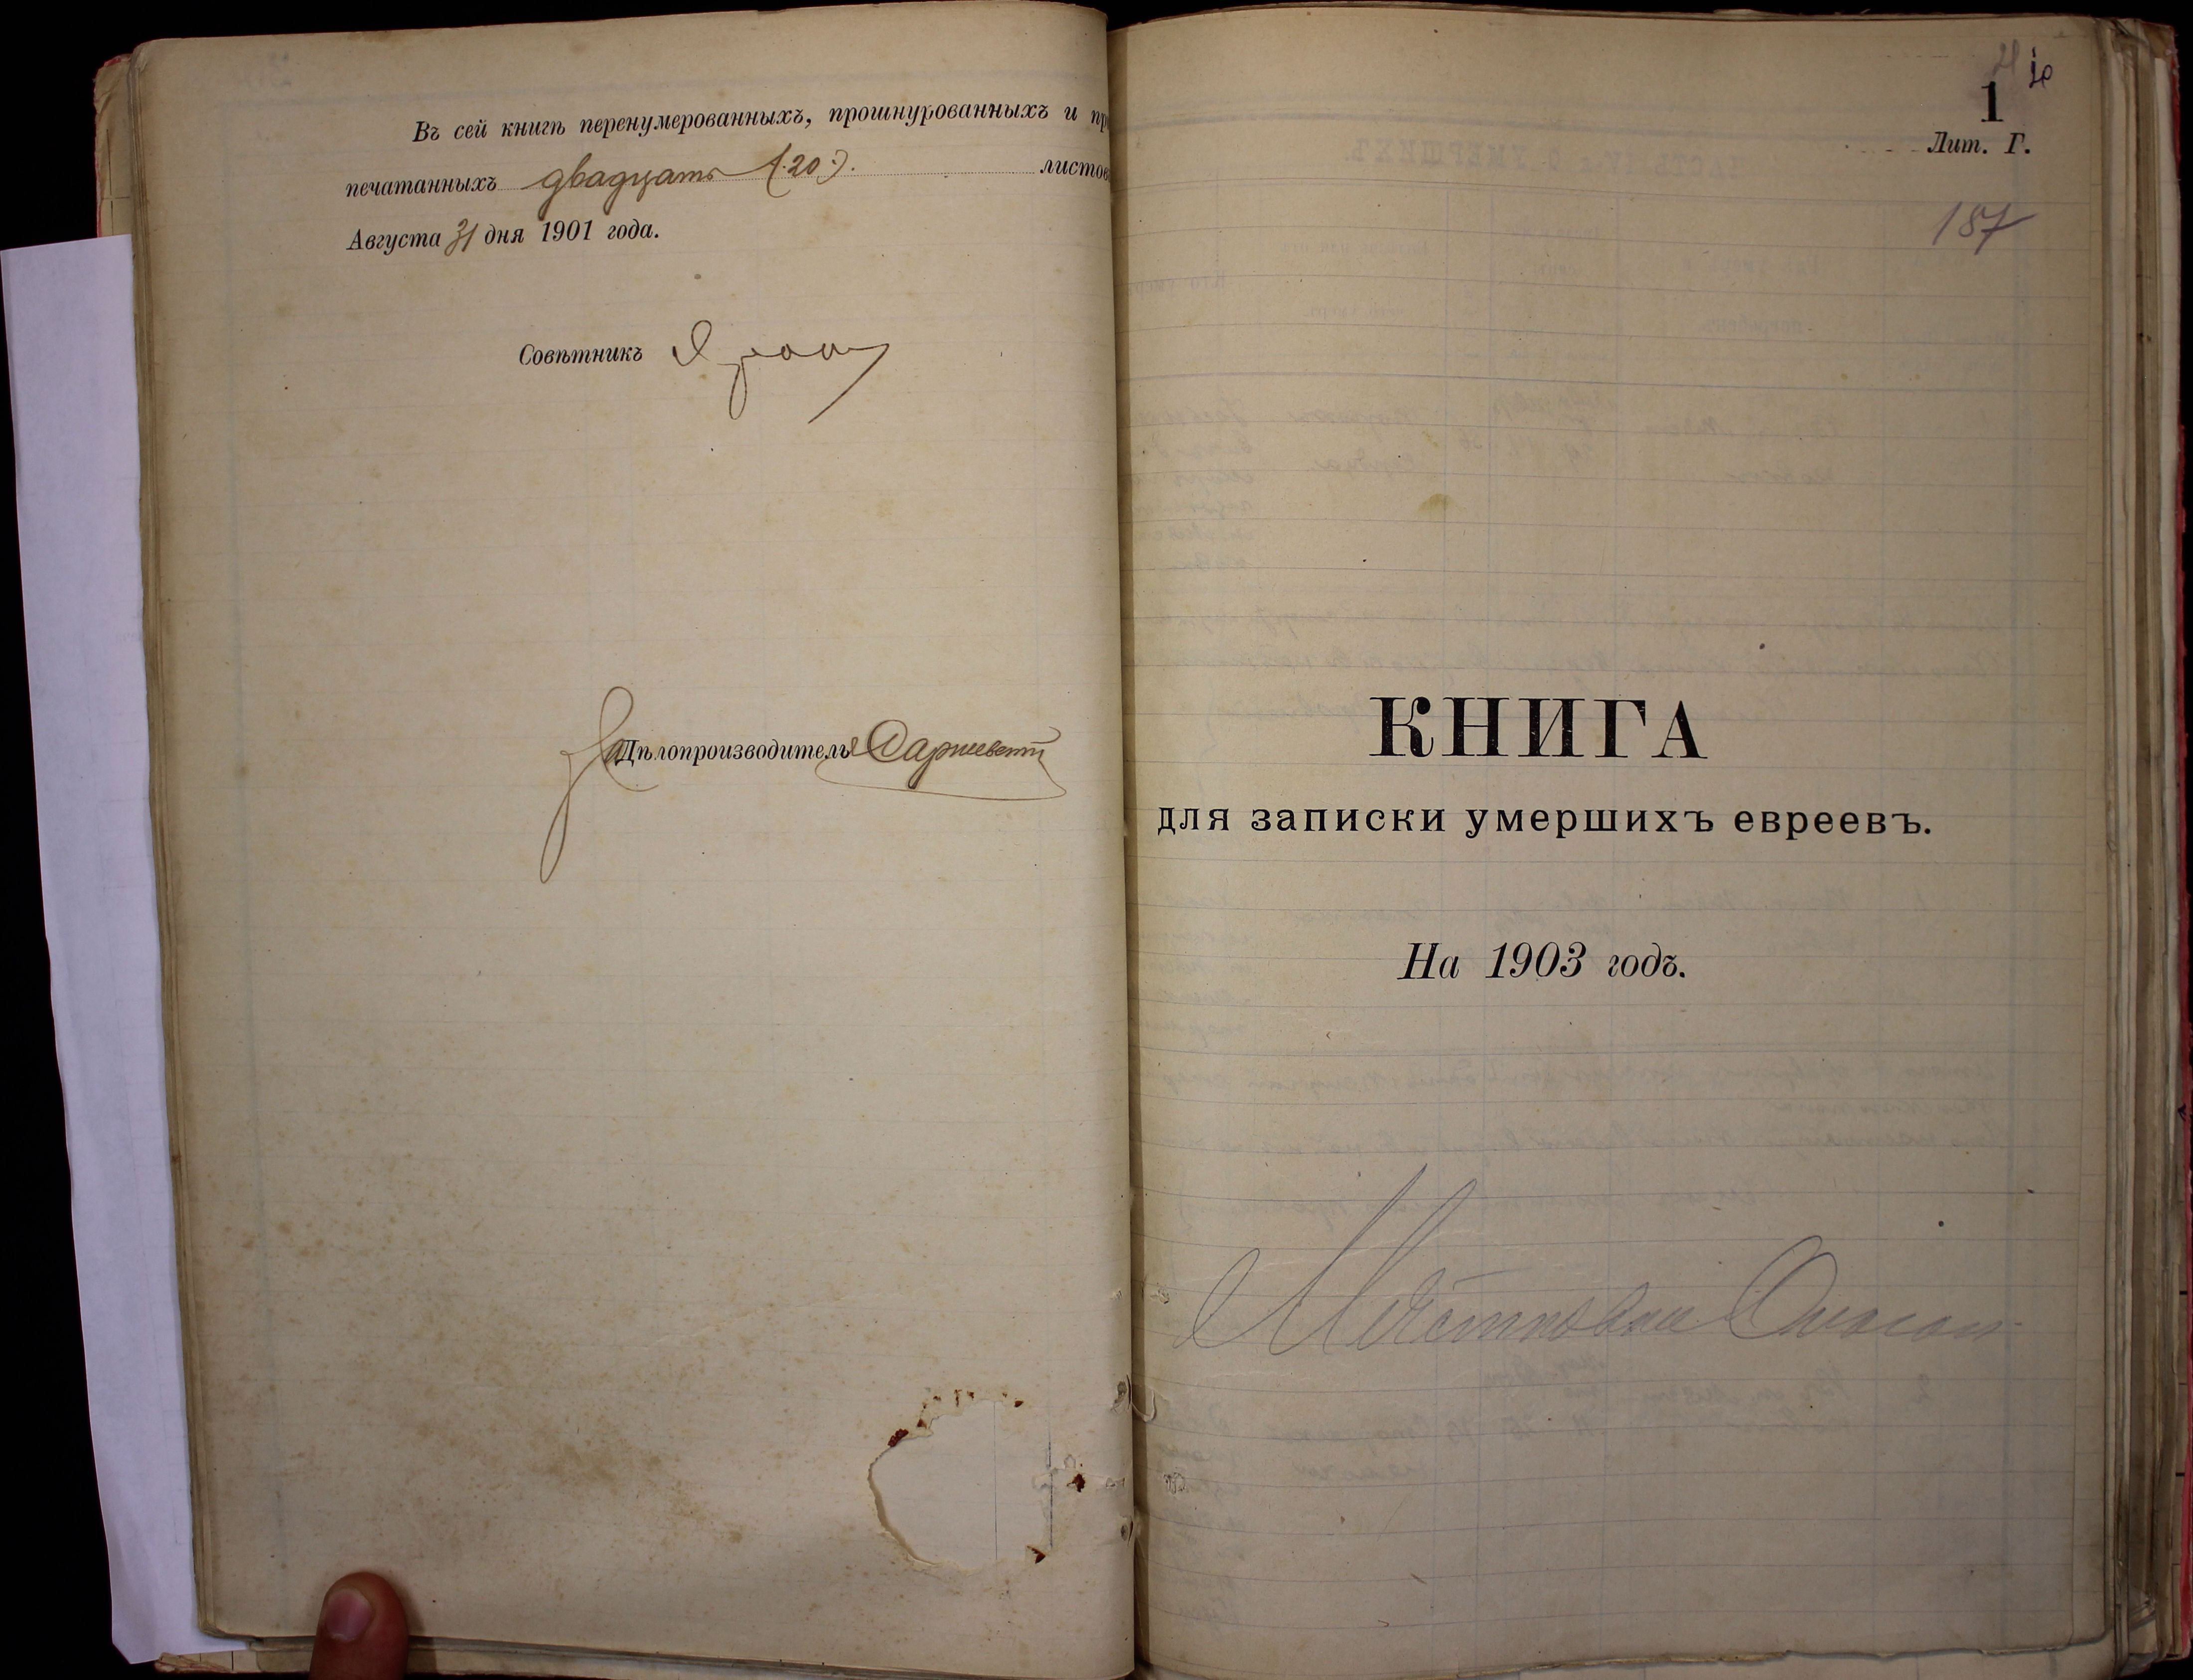 Въ сей книгѣ перенумерованныхъ, прошнурованныхъ и пр
печатанныхъ двадцать (:20:). листов
Августа 31 дня 1901 года.
Совѣтникъ
За Дѣлопроизводителя
1
Лит. Г.
187
КНИГА
для записки умершихъ евреевъ.
На 1903 годъ.